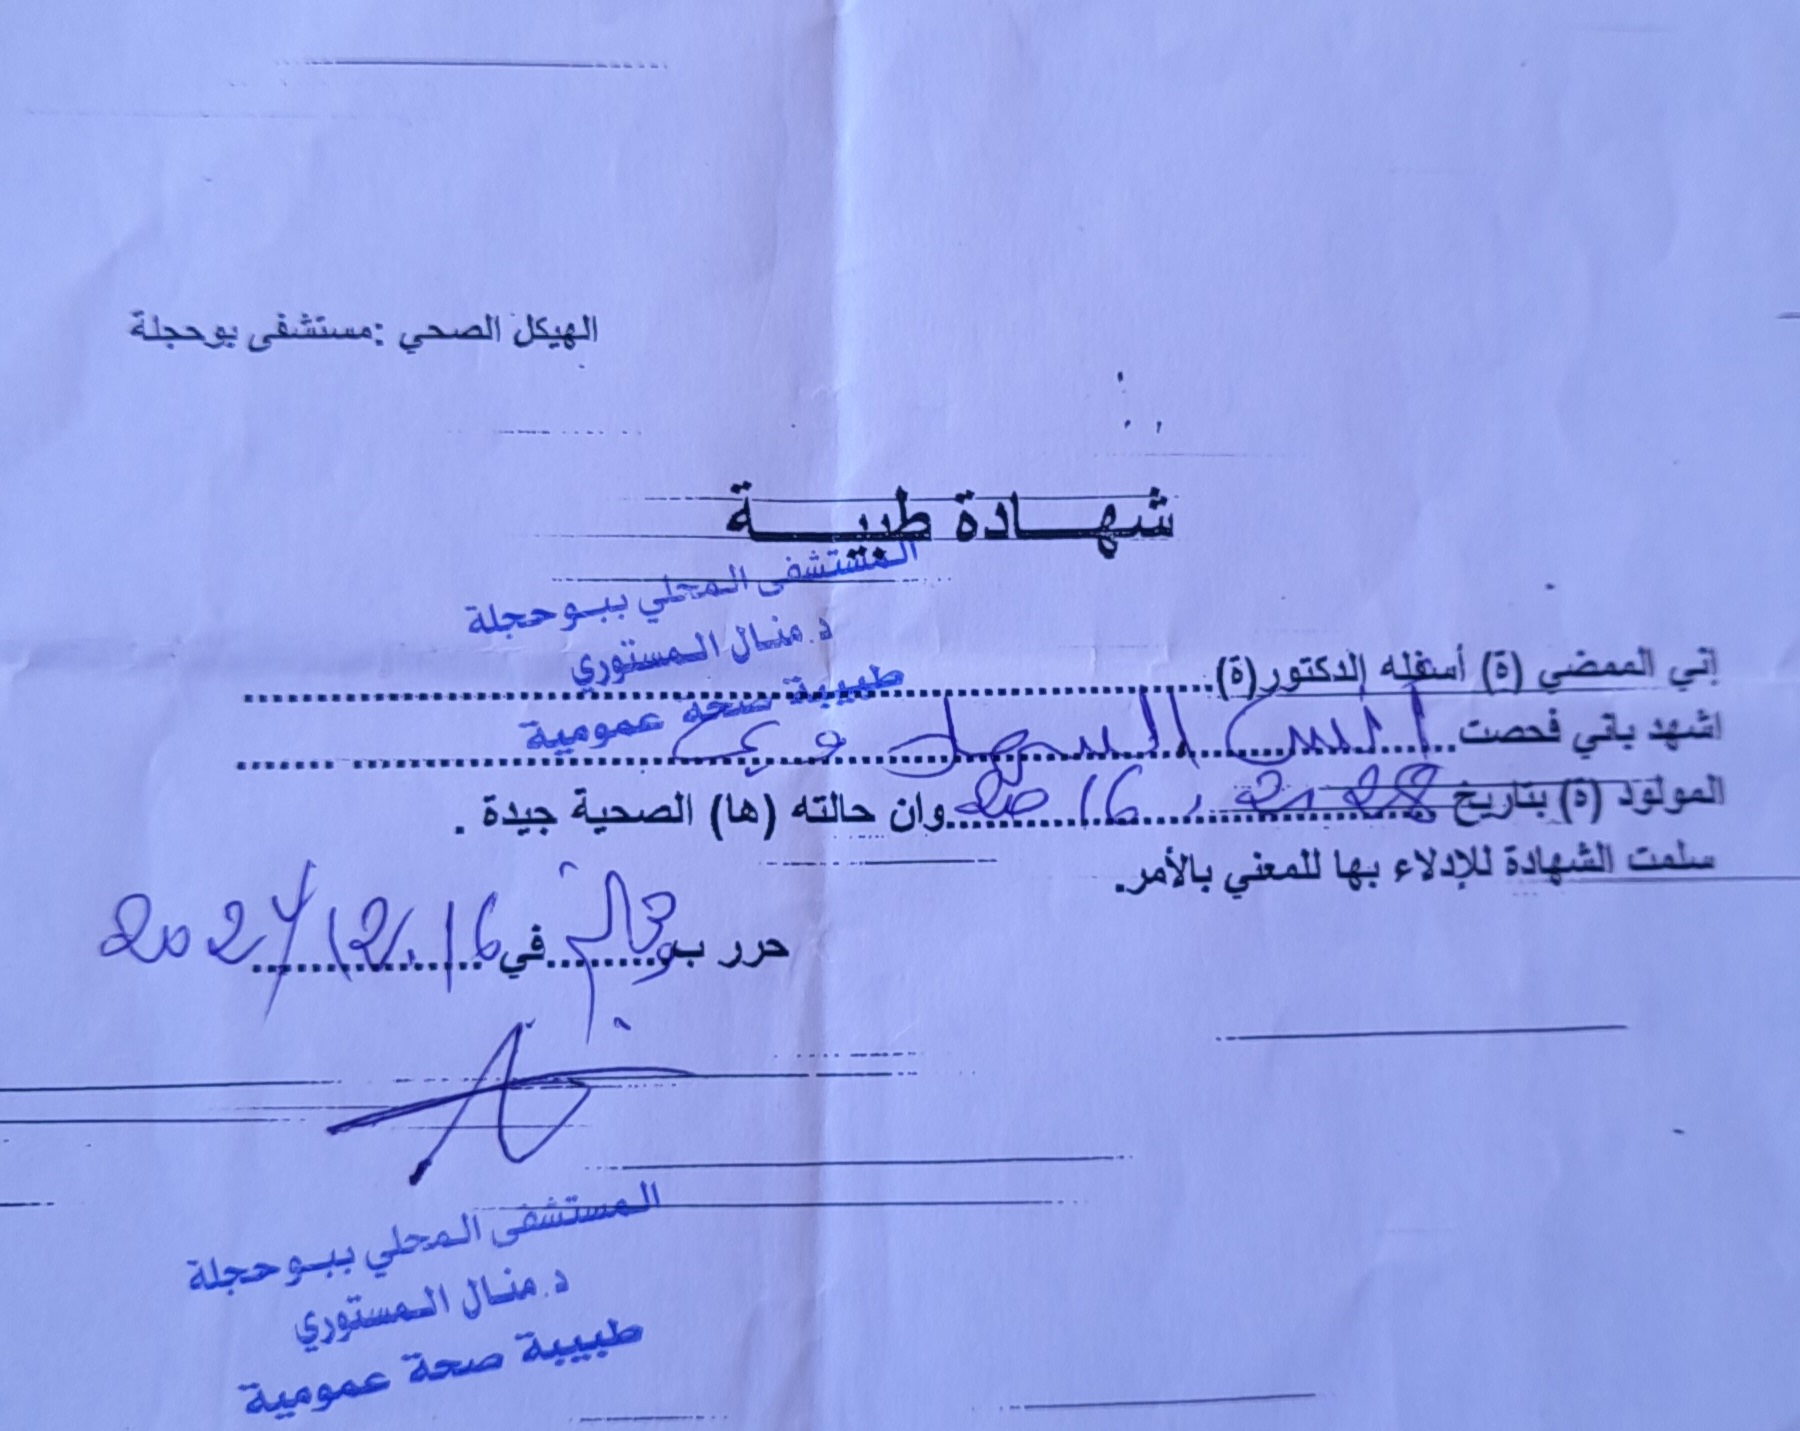 الهيكل الصحي :مستشفى بوحجلة
شهـــــادة طبيـــــة
المستشفى المحلي ببوحجلة
د.منال المستوري
طبيبة صحة عمومية
إني الممضي (ة) أسفله الدكتور(ة)
اشهد باني فحصت انس السهل
المولود (ة) بتاريخ وان حالته (ها) الصحية جيدة .
سلمت الشهادة للإدلاء بها للمعني بالأمر.
حرر بـ في 16/12/2024
المستشفى المحلي ببوحجلة
د.منال المستوري
طبيبة صحة عمومية